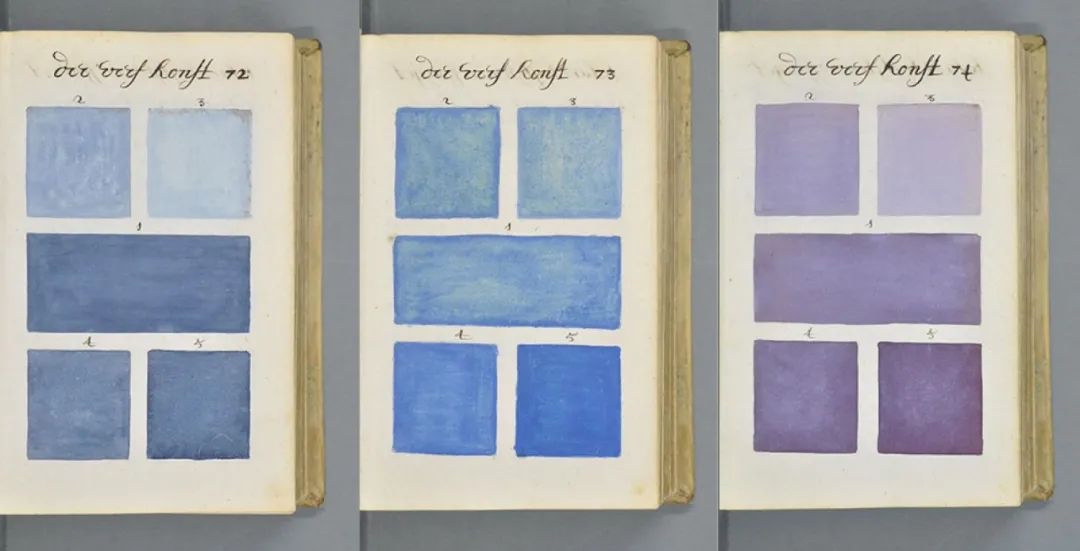 der verf konst 72
2 3
1
4 5
der verf konst 73
2 3
1
4 5
der verf konst 74
2 3
1
4 5